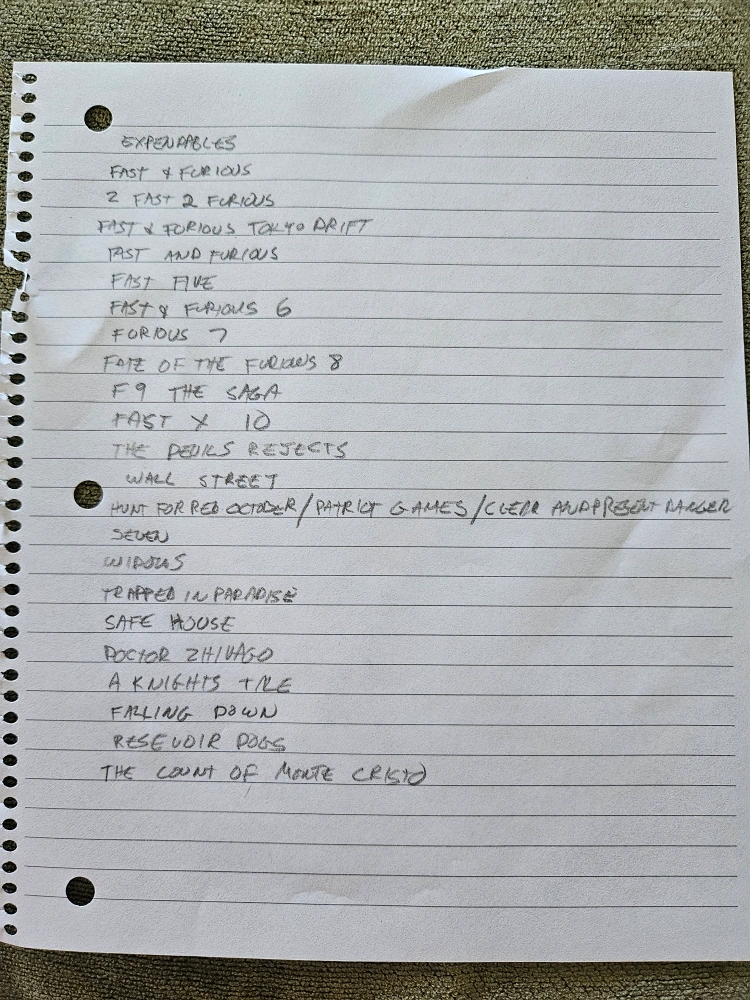 EXPENDABLES
FAST & FURIOUS
2 FAST 2 FURIOUS
FAST & FURIOUS TOKYO DRIFT
FAST AND FURIOUS
FAST FIVE
FAST & FURIOUS 6
FURIOUS 7
FATE OF THE FURIOUS 8
F9 THE SAGA
FAST X 10
THE DEVILS REJECTS
WALL STREET
HUNT FOR RED OCTOBER/PATRIOT GAMES/CLEAR AND PRESENT DANGER
SEVEN
WIDOWS
TRAPPED IN PARADISE
SAFE HOUSE
DOCTOR ZHIVAGO
A KNIGHTS TALE
FALLING DOWN
RESEVOIR DOGS
THE COUNT OF MONTE CRISTO